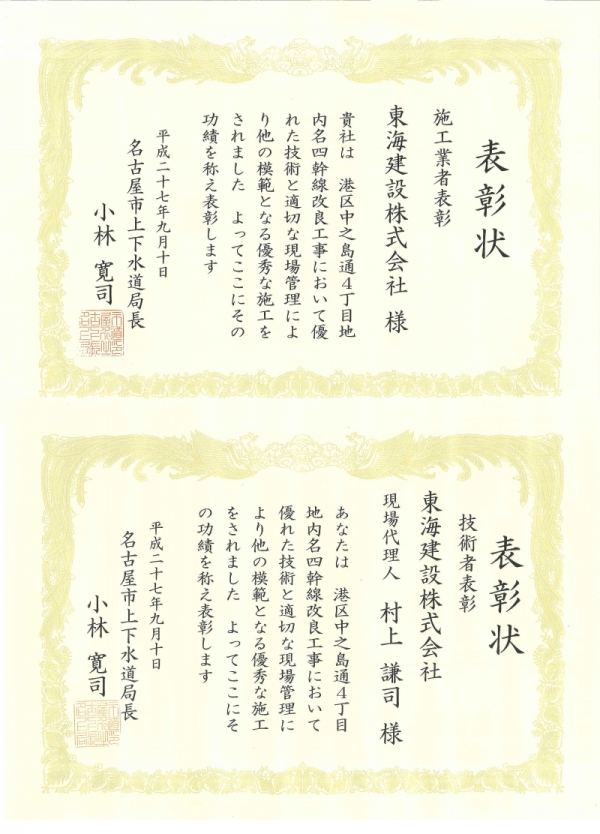 表彰状
施工業者表彰
東海建設株式会社 様
貴社は 港区中之島通４丁目地
内名四幹線改良工事において優
れた技術と適切な現場管理によ
り他の模範となる優秀な施工を
されました よってここにその
功績を称え表彰します
平成二十七年九月十日
名古屋市上下水道局長
小林 寛司
表彰状
技術者表彰
東海建設株式会社
現場代理人 村上 謙司 様
あなたは 港区中之島通４丁目
地内名四幹線改良工事において
優れた技術と適切な現場管理に
より他の模範となる優秀な施工
をされました よってここにそ
の功績を称え表彰します
平成二十七年九月十日
名古屋市上下水道局長
小林 寛司